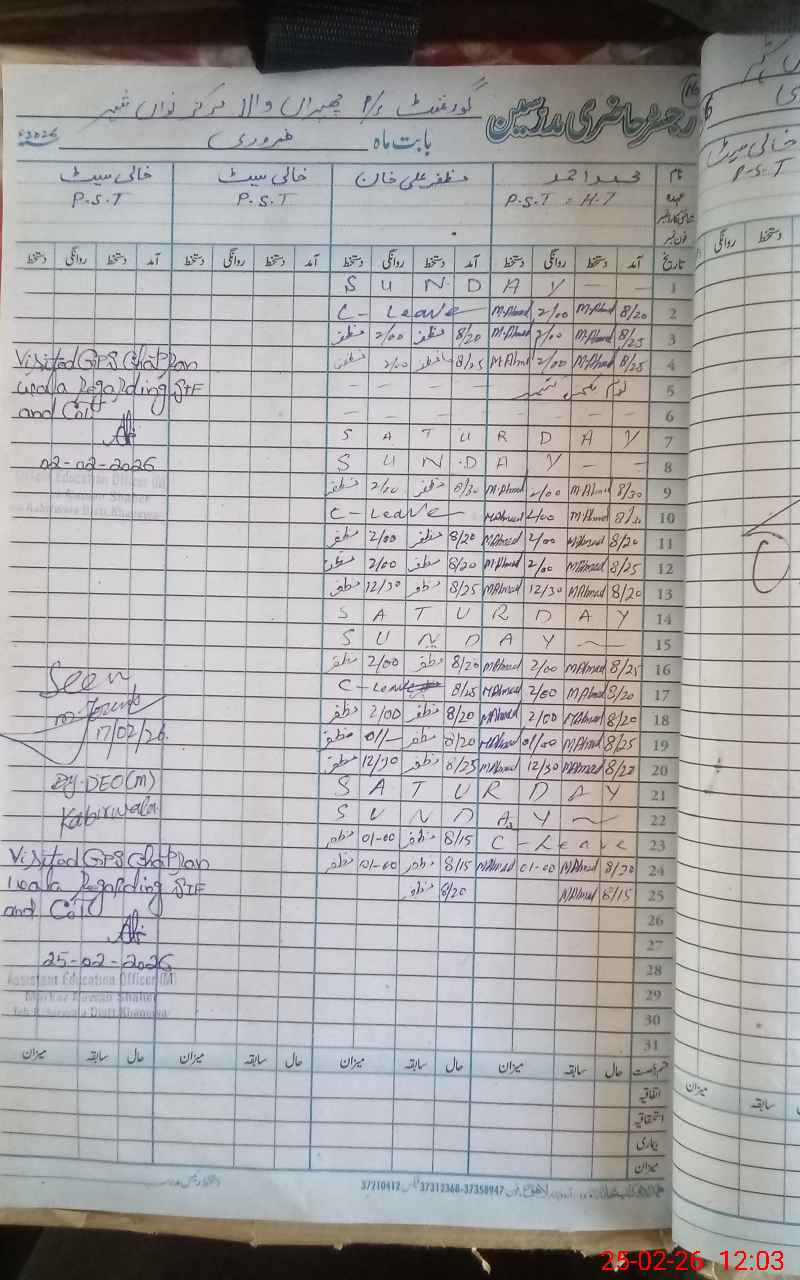 16
رجسٹر حاضری مدرسین
گورنمنٹ P/S چھپراں والا مرکز نواں شہر
بابت ماہ فروری 2026ء
نام محمد احمد مظفر علی خان خالی سیٹ خالی سیٹ
عہدہ P.S.T = H.T P.S.T P.S.T
فون نمبر
تاریخ آمد دستخط روانگی دستخط آمد دستخط روانگی دستخط آمد دستخط روانگی دستخط آمد دستخط روانگی دستخط
S U N D A Y — — 1
C - Leave M.Ahmd 2/00 M.Ahmd 8/20 2
مظفر 2/00 مظفر 8/20 M.Ahmd 2/00 M.Ahmd 8/25 3
مظفر 2/00 مظفر 8/25 M.Ahmd 2/00 M.Ahmd 8/25 4
یوم کشمیر 5
— — — — — — — 6
S A T U R D A Y 7
S U N D A Y — — 8
مظفر 2/00 مظفر 8/30 M.Ahmd 2/00 M.Ahmd 8/30 9
C - Leave M.Ahmad 2/00 M.Ahmd 10
مظفر 2/00 مظفر 8/20 MAhmed 2/00 MAhmed 8/20 11
مظفر 2/00 مظفر 8/20 MAhmed 2/00 MAhmed 8/25 12
مظفر 12/30 مظفر 8/25 MAhmed 12/30 MAhmed 8/20 13
S A T U R D A Y 14
S U N D A Y 15
مظفر 2/00 مظفر 8/20 MAhmed 2/00 MAhmed 8/25 16
C - Leave 8/25 MAhmed 2/00 MAhmed 8/20 17
مظفر 2/00 مظفر 8/20 MAhmed 2/00 MAhmed 8/20 18
مظفر 01/- مظفر 8/20 MAhmed 01/00 MAhmed 8/25 19
مظفر 12/30 مظفر 8/25 MAhmed 12/30 MAhmed 8/20 20
S A T U R D A Y 21
S U N D A Y 22
مظفر 01-00 مظفر 8/15 C - Leave 23
مظفر 01-00 مظفر 8/15 MAhmed 01-00 MAhmed 8/20 24
مظفر 8/20 MAhmed 8/15 25
26
27
28
29
30
31
Visited GPS Chapran
wala Regarding STF
and Cot
02-02-2026
Assistant Education Officer (M)
Seen
17/02/26
Dy. DEO (M)
Kabirwala
Visited GPS Chapran
wala Regarding STF
and Cot
25-02-2026
Assistant Education Officer (M)
Markaz Nawan Shaher
Teh Kabirwala Distt Khanewal
قسم رخصت حال سابقہ میزان حال سابقہ میزان حال سابقہ میزان حال سابقہ میزان
اتفاقیہ
استحقاقیہ
بیماری
میزان
37210412 37312368-37358947
خالی سیٹ
P.S.T
دستخط روانگی
سابقہ میزان
25-02-26 12:03